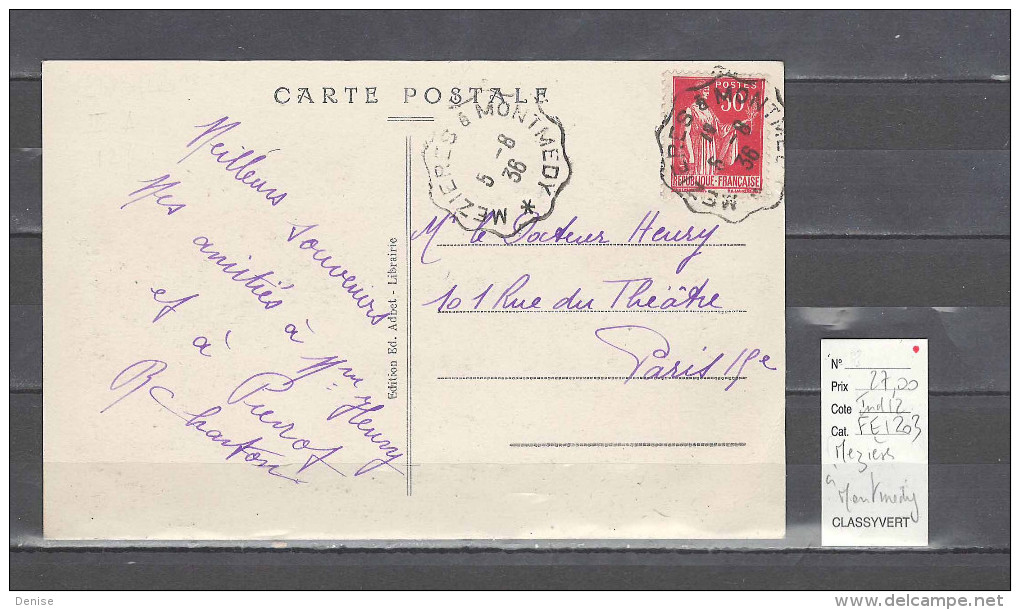 CARTE POSTALE
MEZIERES à MONTMEDY *
5 -8
36
POSTES
50
RÉPUBLIQUE-FRANÇAISE
MEZIERES à MONTMEDY
5 -8
36
Meilleurs souvenirs
Mes amitiés à Mme Henry
et à Pierrot
R Charton
Edition Ed. Adbet - Librairie
Mr le Docteur Henry
101 Rue du Théâtre
Paris 15e
N°
Prix 27,00
Cote Ind 12
Cat. FE1203
Mézières
à
Montmedy
CLASSYVERT
Denise
delcampe.net